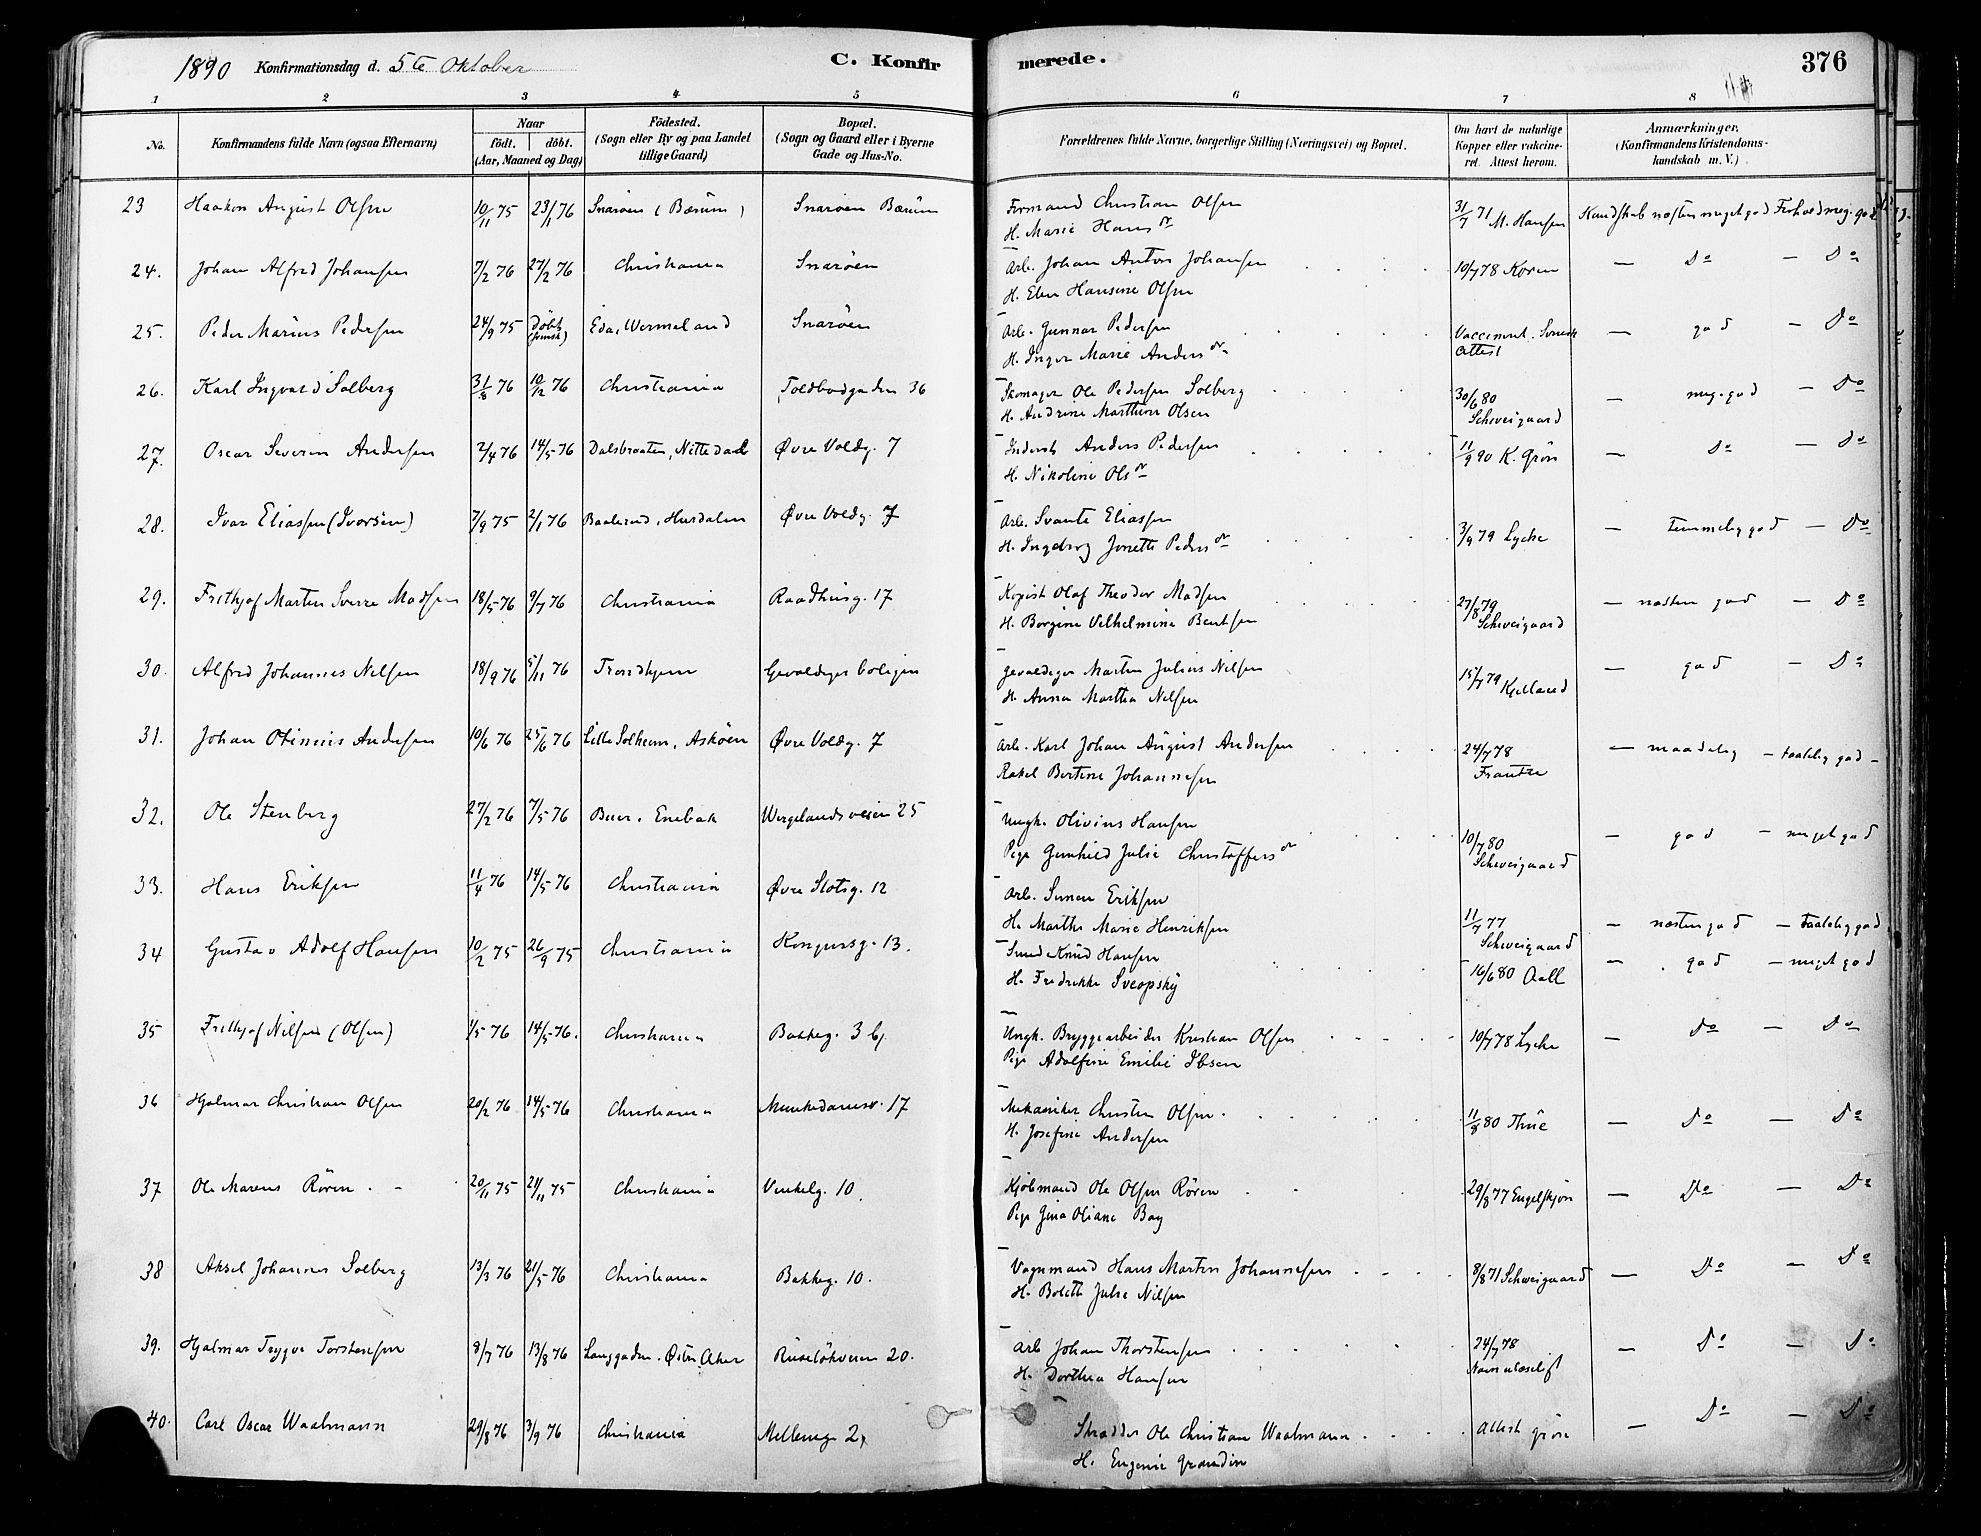 1890 Konfirmationsdag d. 5te Oktober C. Konfirmerede. 376
1 2 3 4 5 6 7 8
No. Konfirmandens fulde Navn (ogsaa Efternavn) Naar födt. döbt. (Aar, Maaned og Dag) Födested. (Sogn eller By og paa Landet tillige Gaard) Bopæl. (Sogn og Gaard eller i Byerne Gade og Hus-No. Forældrenes fulde Navne, borgerlige Stilling (Næringsvei) og Bopæl. Om havt de naturlige Kopper eller vakcineret. Attest herom. Anmærkninger. (Konfirmandens Kristendomskundskab m. V.)
23 Haakon August Olsen 10/11 75 23/1 76 Snaröen (Bærum) Snaröen Bærum Formand Christian Olsen 31/7 71 M. Hansen Kundskab næsten meget god Forhold meg. god
H. Marie Hansdr
24. Johan Alfred Johansen 7/2 76 27/2 76 Christiania Snaröen Arb. Johan Anton Johansen 10/7 78 Koren — Do — Do
H. Elen Hansine Olsen
25. Peder Marius Pedersen 24/9 75 döbt (svensk) Eda, Wermeland Snaröen Arb. Gunnar Pedersen Vaccineret. Svensk Attest — god — Do
H. Inger Marie Andersdr
26. Karl Ingvard Solberg 31/8 76 10/12 76 Christiania Toldbodgaden 36 Skomager Ole Pedersen Solberg 30/6 80 Schweigaard — meg. god — Do
H. Andrine Marthine Olsen
27. Oscar Severin Andersen 2/4 76 14/5 76 Dalsbraaten, Nittedal Øvre Voldg. 7 Inderst Anders Pedersen 11/9 90 K. Grön — Do — Do
H. Nikoline Olsdr
28. Ivar Eliassen (Ivorsen) 7/9 75 2/1 76 Baalerud, Hurdalen Øvre Voldg. 7 Arb. Svante Eliassen 3/9 79 Lyche — temmelig god — Do
H. Ingeborg Jonette Pedersdr
29. Frithjof Martin Sverre Madsen 18/5 76 9/7 76 Christiania Raadhusg. 17 Kopist Olaf Theodor Madsen 27/8 79 Schweigaard — næsten god — Do
H. Borgine Vilhelmine Bentsen
30. Alfred Johannes Nilsen 18/9 76 5/11 76 Trondhjem Gevaldigerboligen Gevaldiger Martin Julius Nilsen 15/7 79 Kjelland — god — Do
H. Anna Martha Nilsen
31. Johan Otinius Andersen 10/6 76 25/6 76 Lille Solheim, Asköen Øvre Voldg. 7 Arb. Karl Johan August Andersen 24/7 78 Frantze — maadelig — taalelig god
Rakel Bertine Johannesen
32. Ole Stenberg 27/2 76 7/5 76 Beier, Enebak Wergelandsveien 25 Ungk. Olivius Hansen 10/7 80 Schweigaard — god — meget god
Pige Gunhild Julie Christoffersdr
33. Hans Eriksen 11/4 76 14/5 76 Christiania Øvre Slotsg. 12 Arb. Simen Eriksen 11/7 77 Schweigaard — næsten god — taalelig god
H. Marthe Marie Henriksen
34 Gustav Adolf Hansen 10/2 75 26/9 75 Christiania Kongensg. 13. Smed Knud Hansen 16/6 80 Aall — god — meget god
H. Fredrikke Sveopsky
35 Frithjof Nilsen (Olsen) 1/5 76 14/5 76. Christiania Bakkeg. 3 b, Ungk. Bryggearbeider Kristian Olsen 10/7 78 Lyche — Do — Do
Pige Adolfine Emilie Ibsen
36 Hjalmar Christian Olsen 20/2 76 14/5 76 Christiania Munkedamsv. 17 Mekaniker Christen Olsen 11/8 80 Thue — Do — Do
H. Josefine Andersen
37 Ole Marius Rören 20/11 75 21/11 75 Christiania Vinkelg. 10. Kjöbmand Ole Olsen Rören 29/8 77 Engelskjön — Do — Do
Pige Gina Oliane Bay
38 Aksel Johannes Solberg 13/3 76 21/5 76 Christiania Bakkeg. 10. Vognmand Hans Martin Johannesen 8/8 71 Schweigaard — Do — Do
H. Bolette Julie Nilsen
39. Hjalmar Trygve Torstensen 9/7 76 13/8 76 Langgaden, Östre Aker Ruselökveien 20. Arb. Johan Thorstensen 24/7 78 Navn ulæseligt — Do — Do
H. Dorthea Hansen
40. Carl Oscar Waalmann 29/8 76 3/9 76 Christiania Mellemg. 2, Skrædder Ole Christian Waalmann Attest Grön — Do — Do
H. Eugenie Grandin